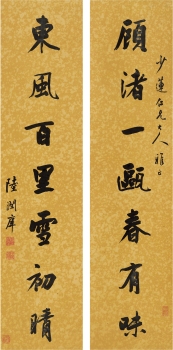 顧渚一甌春有味
少蓮仁兄大人雅正
東風百里雪初晴
陸潤庠